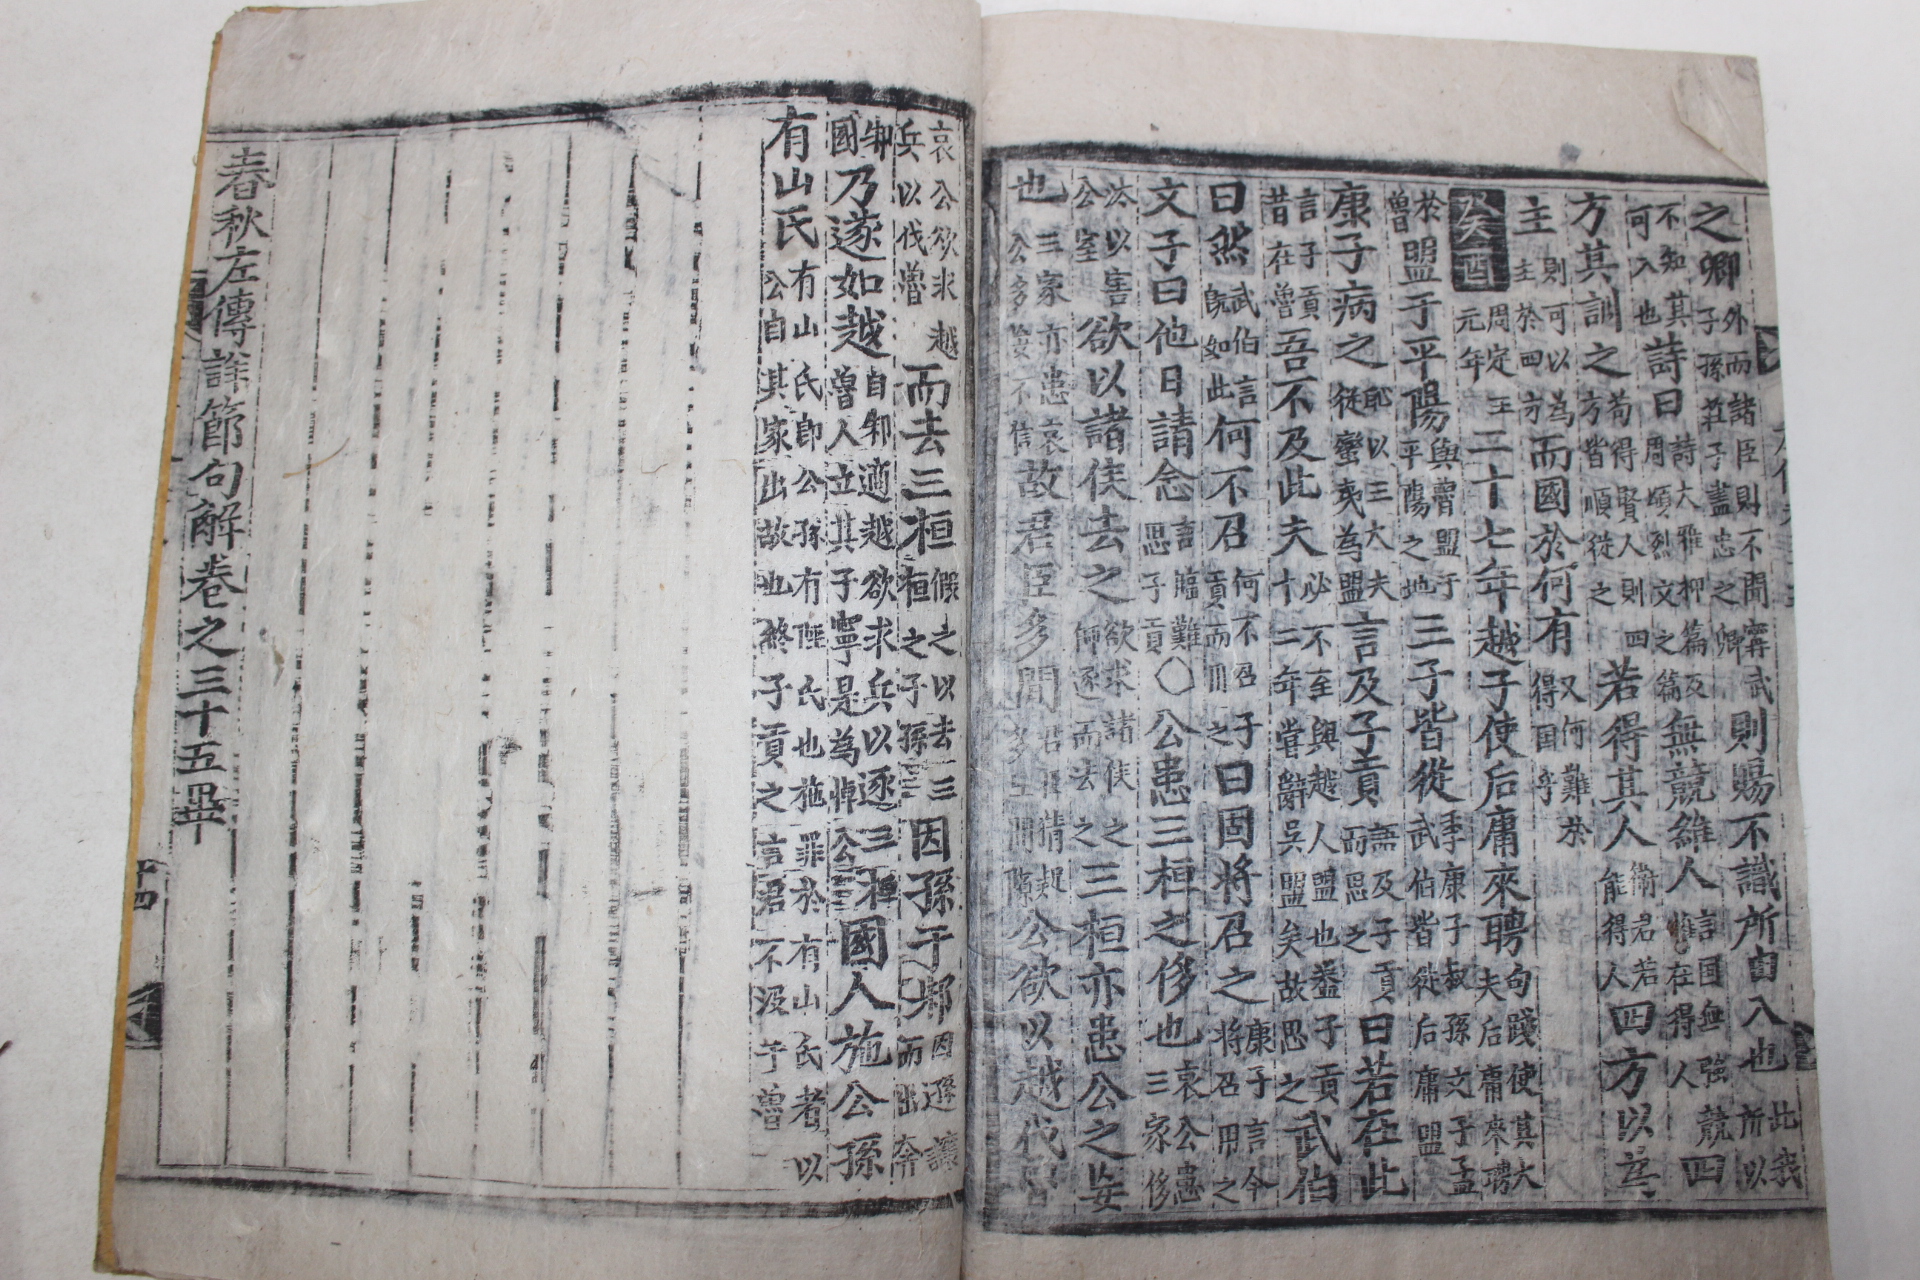 之卿外而諸臣則不聞甯武子孫莊子蓋忠之卿則賜不識所由入也此我所以
不知其可入也詩曰詩大雅抑篇及周頌烈文之篇無競維人言国無強競惟在得人四
方其訓之苟得賢人則四方皆順從之若得其人衛君若能得人四方以為
主則可以為主於四方而國於何有又何難於得国乎
癸酉周定王元年二十七年越子使后庸來聘句踐使其大夫后庸來聘
於魯盟于平陽與魯盟于平陽之地三子皆從季康子叔孫文子孟武伯皆從后庸盟
康子病之耻以三大夫從蠻夷為盟言及子貢語及子貢而思之曰若在此
言子貢昔在魯吾不及此夫必不至與越人盟也蓋子貢十二年嘗辭吳盟矣故思之武伯
曰然武伯言旣如此何不召何不召子貢而用之曰固將召之康子言今將召用之
文子曰他日請念言臨難思子貢○公患三桓之侈也哀公患三家侈
汰以害公室欲以諸侯去之欲求諸侯之師逐而去之三桓亦患公之妄
也三家亦患哀公多妄不信故君臣多間君臣猜疑多生間隙公欲以越伐魯
哀公欲求越兵以伐魯而去三桓假之以去三桓之子孫因孫于邾因遜讓而出奔
邾國乃遂如越自邾適越欲求兵以逐三桓魯人立其子寧是為悼公國人施公孫
有山氏有山氏即公孫有陘氏也施罪於有山氏者以公自其家出故也終子貢之言君不沒于魯
春秋左傳詳節句解卷之三十五畢
十四